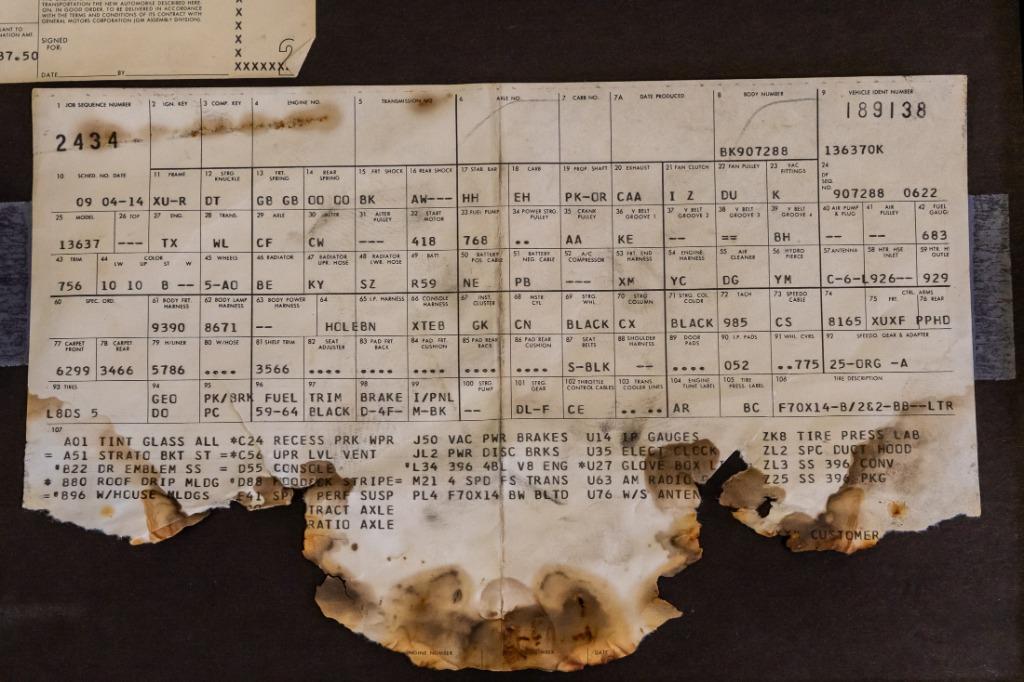 TRANSPORTATION THE NEW AUTOMOBILE DESCRIBED HERE-
ON, IN GOOD ORDER, TO BE DELIVERED IN ACCORDANCE
WITH THE TERMS AND CONDITIONS OF ITS CONTRACT WITH
GENERAL MOTORS CORPORATION (GM ASSEMBLY DIVISION).
SIGNED
FOR:
37.50
DATE BY
X
X
X
X
XXXXXX. 2
1 JOB SEQUENCE NUMBER 2 IGN. KEY 3 COMP. KEY 4 ENGINE NO. 5 TRANSMISSION NO. 6 AXLE NO. 7 CARB NO. 7A DATE PRODUCED 8 BODY NUMBER 9 VEHICLE IDENT NUMBER
2434 189138
BK907288 136370K
10 SCHED. NO. DATE 11 FRAME 12 STRG KNUCKLE 13 FRT. SPRING 14 REAR SPRING 15 FRT SHOCK 16 REAR SHOCK 17 STAB. BAR 18 CARB 19 PROP SHAFT 20 EXHAUST 21 FAN CLUTCH 22 FAN PULLEY 23 VAC FITTINGS 24 SEQ. NO.
09 04-14 XU-R DT GB GB OO OO BK AW--- HH EH PK-OR CAA I Z DU K 907288 0622
25 MODEL 26 TOP 27 ENG. 28 TRANS. 29 AXLE 30 ALTER 31 ALTER PULLEY 32 START MOTOR 33 FUEL PUMP 34 POWER STRG. PULLEY 35 CRANK PULLEY 36 V BELT GROOVE 1 37 V BELT GROOVE 2 38 V BELT GROOVE 3 39 V BELT GROOVE 4 40 AIR PUMP & PLUG 41 AIR PULLEY 42 FUEL GAUG
13637 --- TX WL CF CW --- 418 768 .. AA KE -- == BH -- -- 683
43 TRIM 44 COLOR LW UP ST W 45 WHEELS 46 RADIATOR 47 RADIATOR UPR. HOSE 48 RADIATOR LWR. HOSE 49 BATT 50 BATTERY POS. CABLE 51 BATTERY NEG. CABLE 52 A/C COMPRESSOR 53 FRT. END HARNESS 54 ENGINE HARNESS 55 AIR CLEANER 56 HYDRO PIERCE 57 ANTENNA 58 HTR. HSE INLET 59 HTR. H OUTLE
756 10 10 B -- 5-AO BE KY SZ R59 NE PB --- XM YC DG YM C-6-L926-- 929
60 SPEC. ORD. 61 BODY FRT HARNESS 62 BODY LAMP HARNESS 63 BODY POWER HARNESS 64 65 I.P. HARNESS 66 CONSOLE HARNESS 67 INST. CLUSTER 68 MSTR CYL 69 STRG WHL 70 STRG COLUMN 71 STRG COL. COLOR 72 TACH 73 SPEEDO CABLE 74 75 FRT. CTRL. ARMS 76 REAR
9390 8671 -- HOLEBN XTEB GK CN BLACK CX BLACK 985 CS 8165 XUXF PPHD
77 CARPET FRONT 78 CARPET REAR 79 H/LINER 80 W/HOSE 81 SHELF TRIM 82 SEAT ADJUSTER 83 PAD FRT. BACK 84 PAD FRT. CUSHION 85 PAD REAR BACK 86 PAD REAR CUSHION 87 SEAT BELTS 88 SHOULDER HARNESS 89 DOOR PADS 90 I.P. PADS 91 WHL. CVRS 92 SPEEDO. GEAR & ADAPTER
6299 3466 5786 .... 3566 .... .... .... .... .... S-BLK -- .... 052 ..775 25-ORG -A
93 TIRES 94 95 96 97 98 99 100 STRG. PUMP 101 STRG. GEAR 102 THROTTLE CONTROL CABLES 103 TRANS. COOLER LINES 104 ENGINE TUNE LABEL 105 TIRE PRESS. LABEL 106 TIRE DESCRIPTION
GEO PK/BRK FUEL TRIM BRAKE I/PNL
L8DS 5 DO PC 59-64 BLACK D-4F- M-BK -- DL-F CE .. .. AR BC F70X14-B/2&2-BB--LTR
107
A01 TINT GLASS ALL *C24 RECESS PRK WPR J50 VAC PWR BRAKES U14 IP GAUGES ZK8 TIRE PRESS LAB
= A51 STRATO BKT ST =*C56 UPR LVL VENT JL2 PWR DISC BRKS U35 ELECT CLOCK ZL2 SPC DUCT HOOD
*B22 DR EMBLEM SS = D55 CONSOLE *L34 396 4BL V8 ENG *U27 GLOVE BOX LI ZL3 SS 396 CONV
* B80 ROOF DRIP MLDG *D88 STRIPE= M21 4 SPD FS TRANS U63 AM RADIO Z25 SS 396 PKG
=*B96 W/HOUSE MLDGS F41 SP PERF SUSP PL4 F70X14 BW BLTD U76 W/S ANTEN
TRACT AXLE
RATIO AXLE
CUSTOMER
ENGINE NUMBER DATE